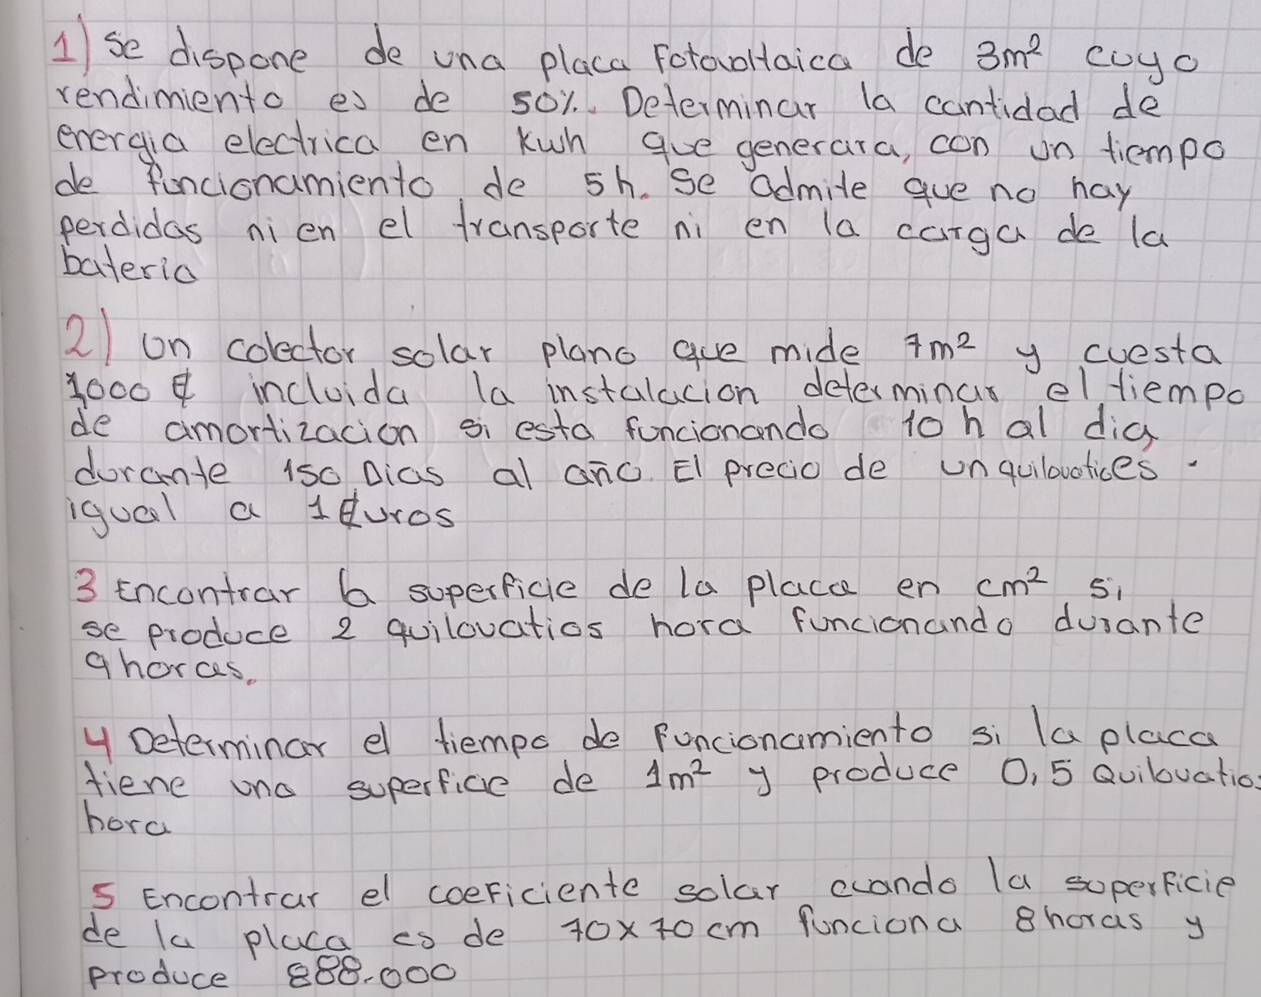 1) se dispone de una placa fotovoltaica de 3m² cuyo
rendimiento es de 50%. Determinar la cantidad de
energia electrica en kwh que generara, con un tiempo
de funcionamiento de 5h. se admite que no hay
perdidas ni en el transporte ni en la carga de la
bateria
2) un colector solar plano que mide 7m² y cuesta
1000 € incluida la instalacion determinar el tiempo
de amortizacion si esta funcionando 10 h al dia
durante 150 Dias al año. El precio de un quilovatices.
igual a 1 Euros
3 Encontrar la superficie de la placa en cm² si
se produce 2 quilovatios hora funcionando durante
9horas.
4 Determinar el tiempo de funcionamiento si la placa
tiene una superficie de 1m² y produce 0,5 Quilovatios
hora
5 Encontrar el coeficiente solar cuando la superficie
de la placa es de 70x70cm funciona 8horas y
produce 888.000